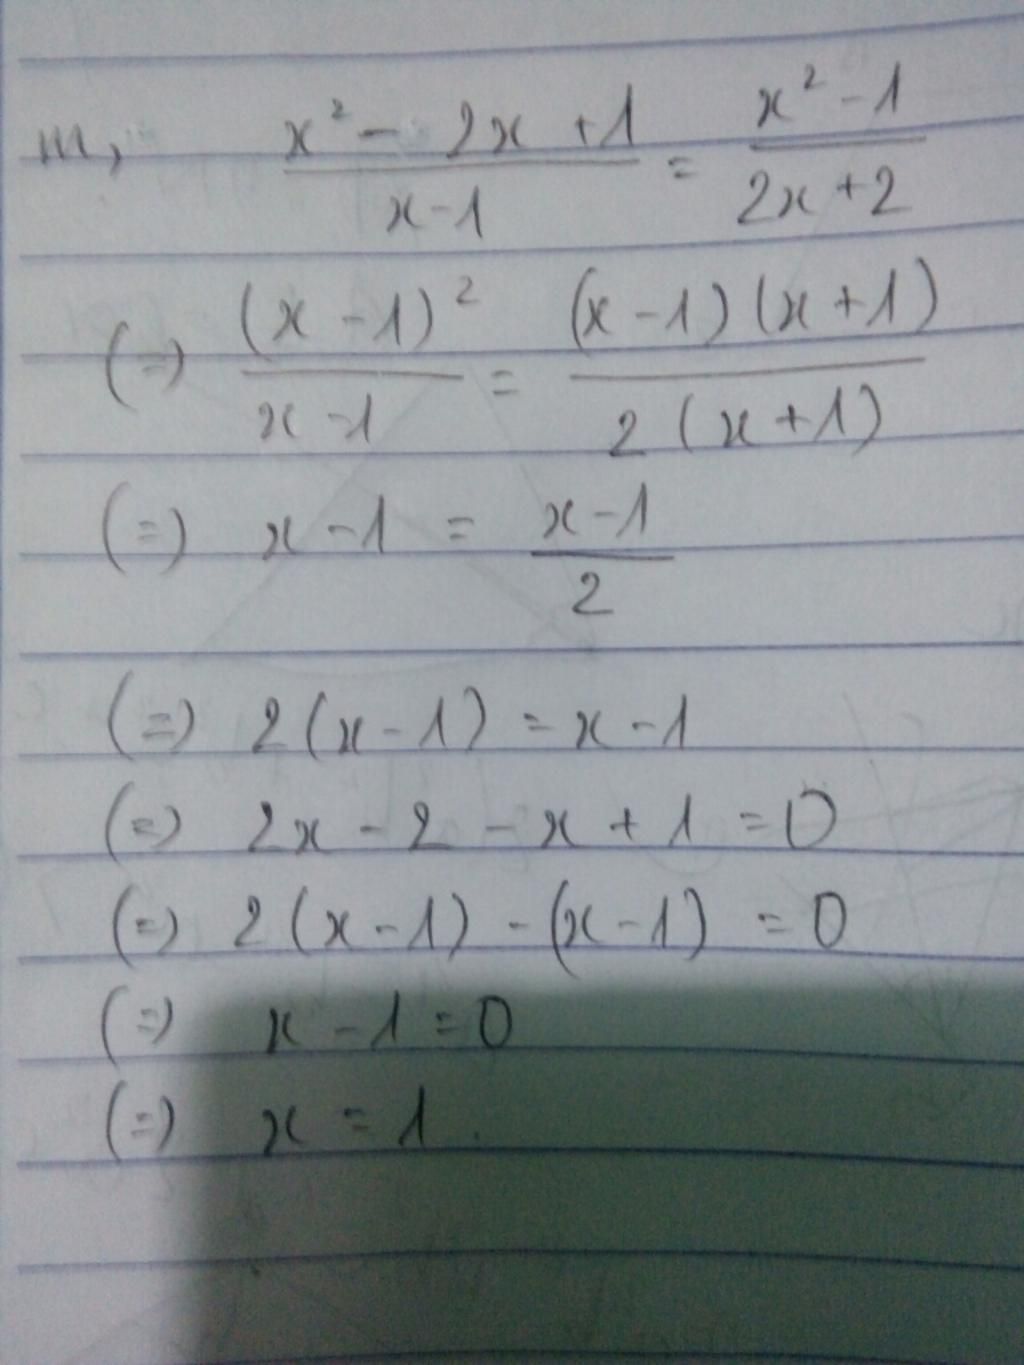 m, (x² - 2x + 1)/(x - 1) = (x² - 1)/(2x + 2)
(=) (x - 1)²/(x - 1) = (x - 1)(x + 1)/2(x + 1)
(=) x - 1 = (x - 1)/2
(=) 2(x - 1) = x - 1
(=) 2x - 2 - x + 1 = 0
(=) 2(x - 1) - (x - 1) = 0
(=) x - 1 = 0
(=) x = 1.